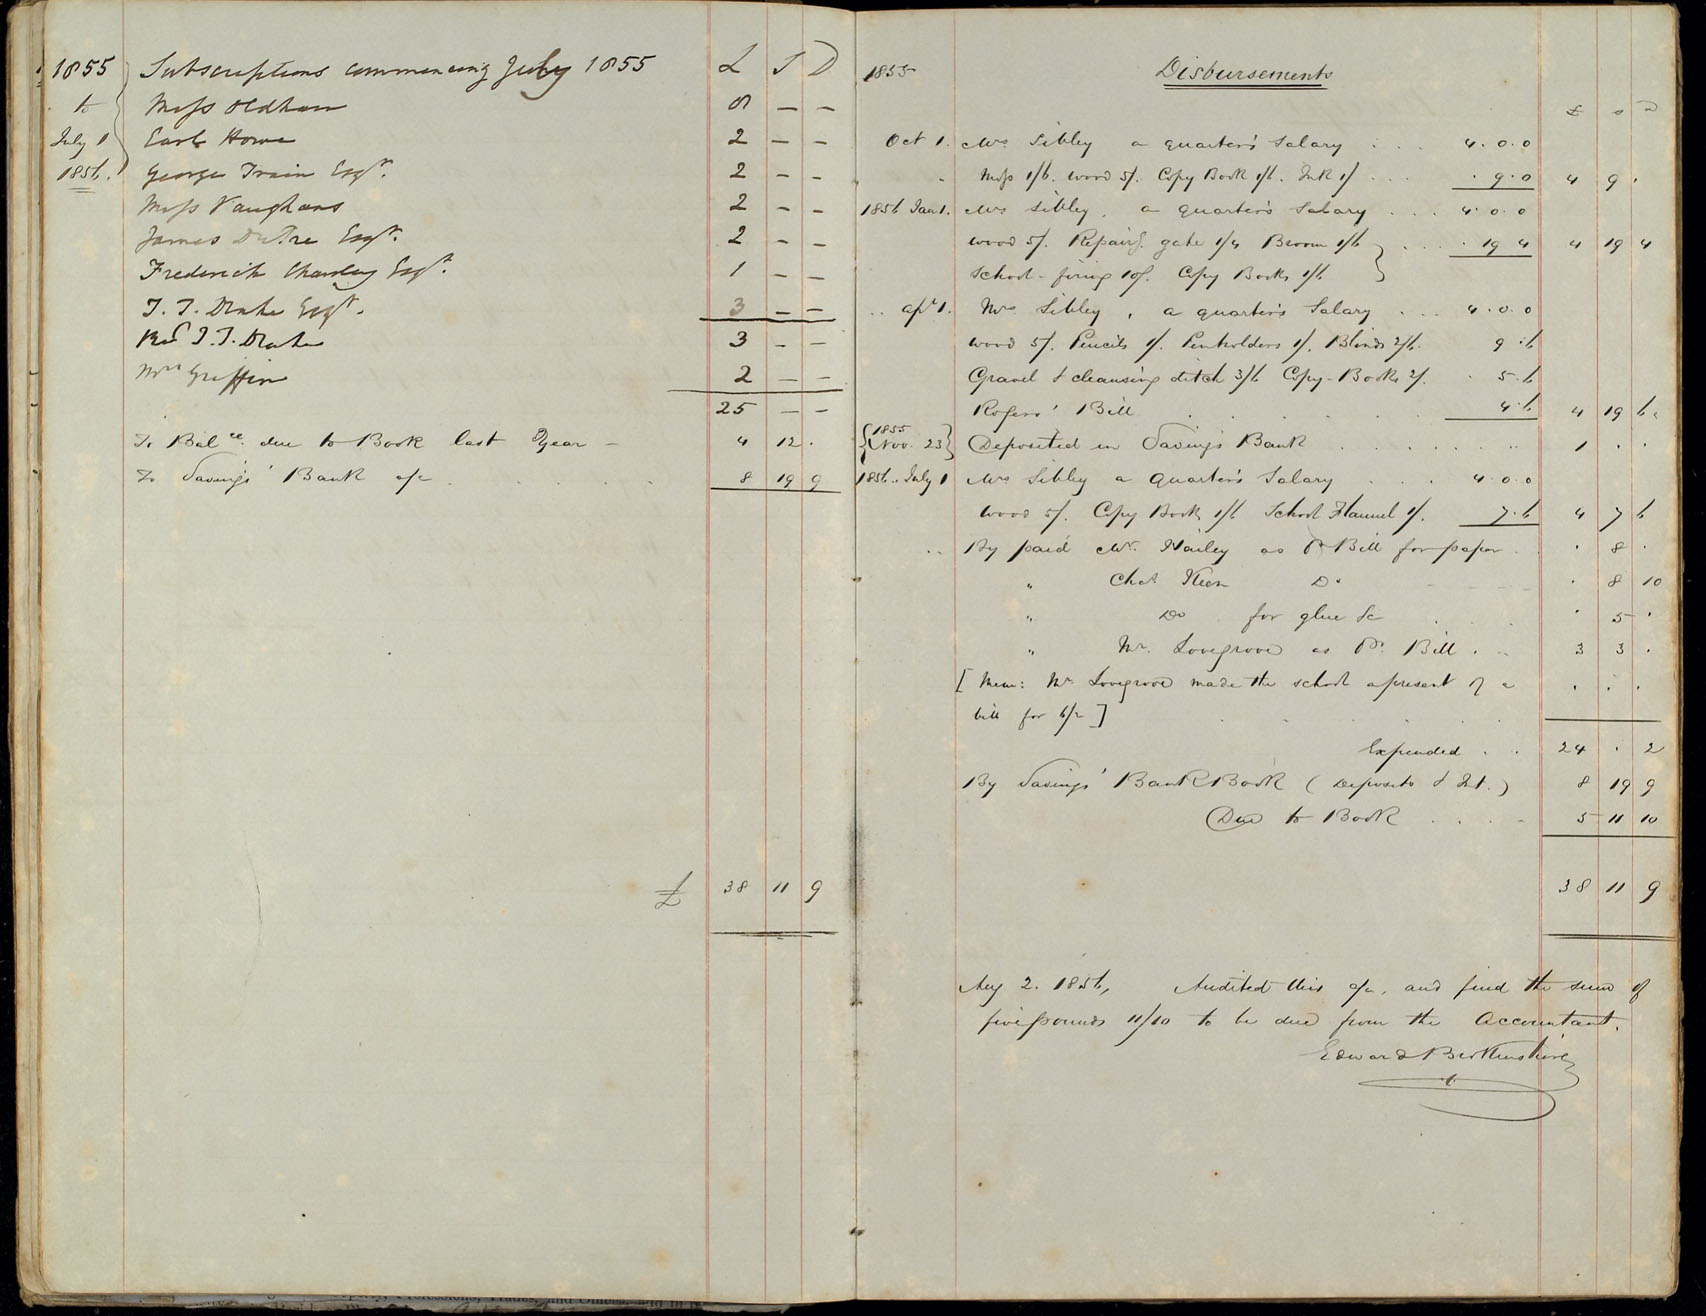 1855 Subscriptions commencing July 1855 £ S D
to Miss Oldham 8 — —
July 1 Earl Howe 2 — —
1856. George Train Esqr. 2 — —
Miss Vaughans 2 — —
James DuPre Esqr. 2 — —
Frederick Charsley Esqr. 1 — —
T. T. Drake Esqr. 3 — —
Revd J. T. Drake 3 — —
Mrs Griffin 2 — —
25 — —
To Balce. due to Book last Year — 4 12 .
To Savings' Bank a/c 8 19 9
£ 38 11 9
1855 Disbursements
£ s D
Oct 1. Mrs Sibley a quarter's Salary 4.0.0
Mops 1/6. wood 5/. Copy Book 1/6. Ink 1/ . 9.0 4 9 .
1856 Jan 1. Mrs Sibley, a quarter's Salary 4.0.0
wood 5/. Repairg. gate 1/4 Broom 1/6 } 19 4 4 19 4
School-firing 10/. Copy Books 1/6
Apl 1. Mrs Sibley, a quarter's Salary 4.0.0
wood 5/. Pencils 1/. Penholders 1/. Blinds 2/6. 9.6
Gravel & cleansing ditch 3/6 Copy-Books 2/. 5.6
Rogers' Bill 4.6 4 19 6.
{1855 Nov. 23} Deposited in Savings Bank 1 . .
1856.. July 1 Mrs Sibley a Quarter's Salary 4.0.0
wood 5/. Copy Book 1/6 School Flannel 1/. 7.6 4 7 6
By paid Mr. Hailey as Pr Bill for paper . 8 .
" Chas Keen Do . 8 10
" Do for glue &c . 5 .
" Mr. Lovegrove as Pr. Bill . 3 3 .
[Mem: Mr Lovegrove made the school a present of a . . .
bill for 6/2]
Expended . . 24 . 2
By Savings' Bank Book (Deposits & Int.) 8 19 9
Due to Book 5 11 10
38 11 9
Aug 2. 1856, Audited this a/c, and find the sum of
five pounds 11/10 to be due from the Accountant.
Edward